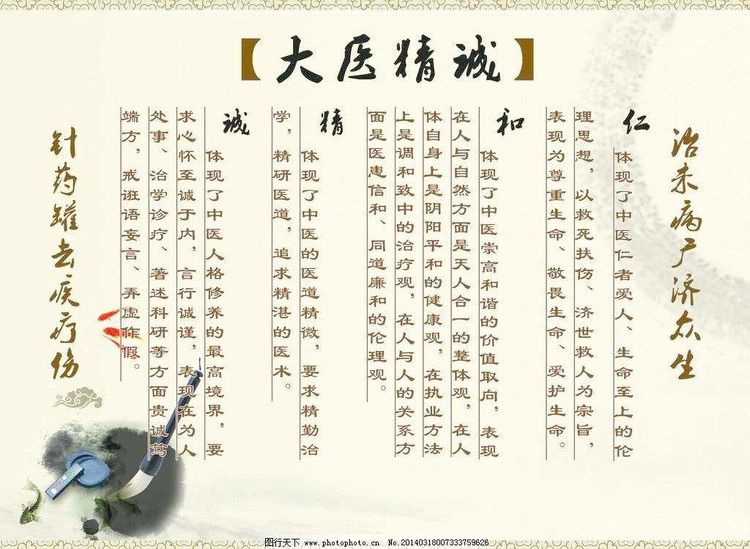 【大医精诚】
治未病广济众生
仁
体现了中医仁者爱人、生命至上的伦
理思想，以救死扶伤、济世救人为宗旨，
表现为尊重生命、敬畏生命、爱护生命。
和
体现了中医崇高和谐的价值取向，表现
在人与自然方面是天人合一的整体观，在人
体自身上是阴阳平和的健康观，在执业方法
上是调和致中的治疗观，在人与人的关系方
面是医患信和、同道廉和的伦理观。
精
体现了中医的医道精微，要求精勤治
学，精研医道，追求精湛的医术。
诚
体现了中医人格修养的最高境界，要
求心怀至诚于内，言行诚谨，表现在为人
处事、治学诊疗、著述科研等方面贵诚笃
端方，戒诳语妄言、弄虚作假。
针药罐去疾疗伤
图行天下 www.photophoto.cn No.20140318007333759626